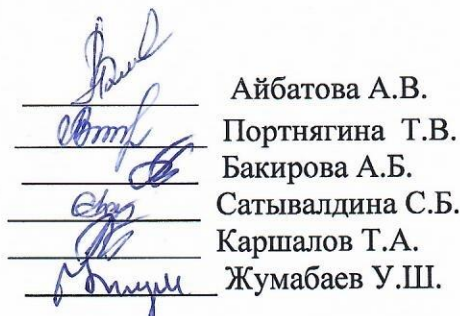 Айбатова А.В.
Портнягина Т.В.
Бакирова А.Б.
Сатывалдина С.Б.
Каршалов Т.А.
Жумабаев У.Ш.